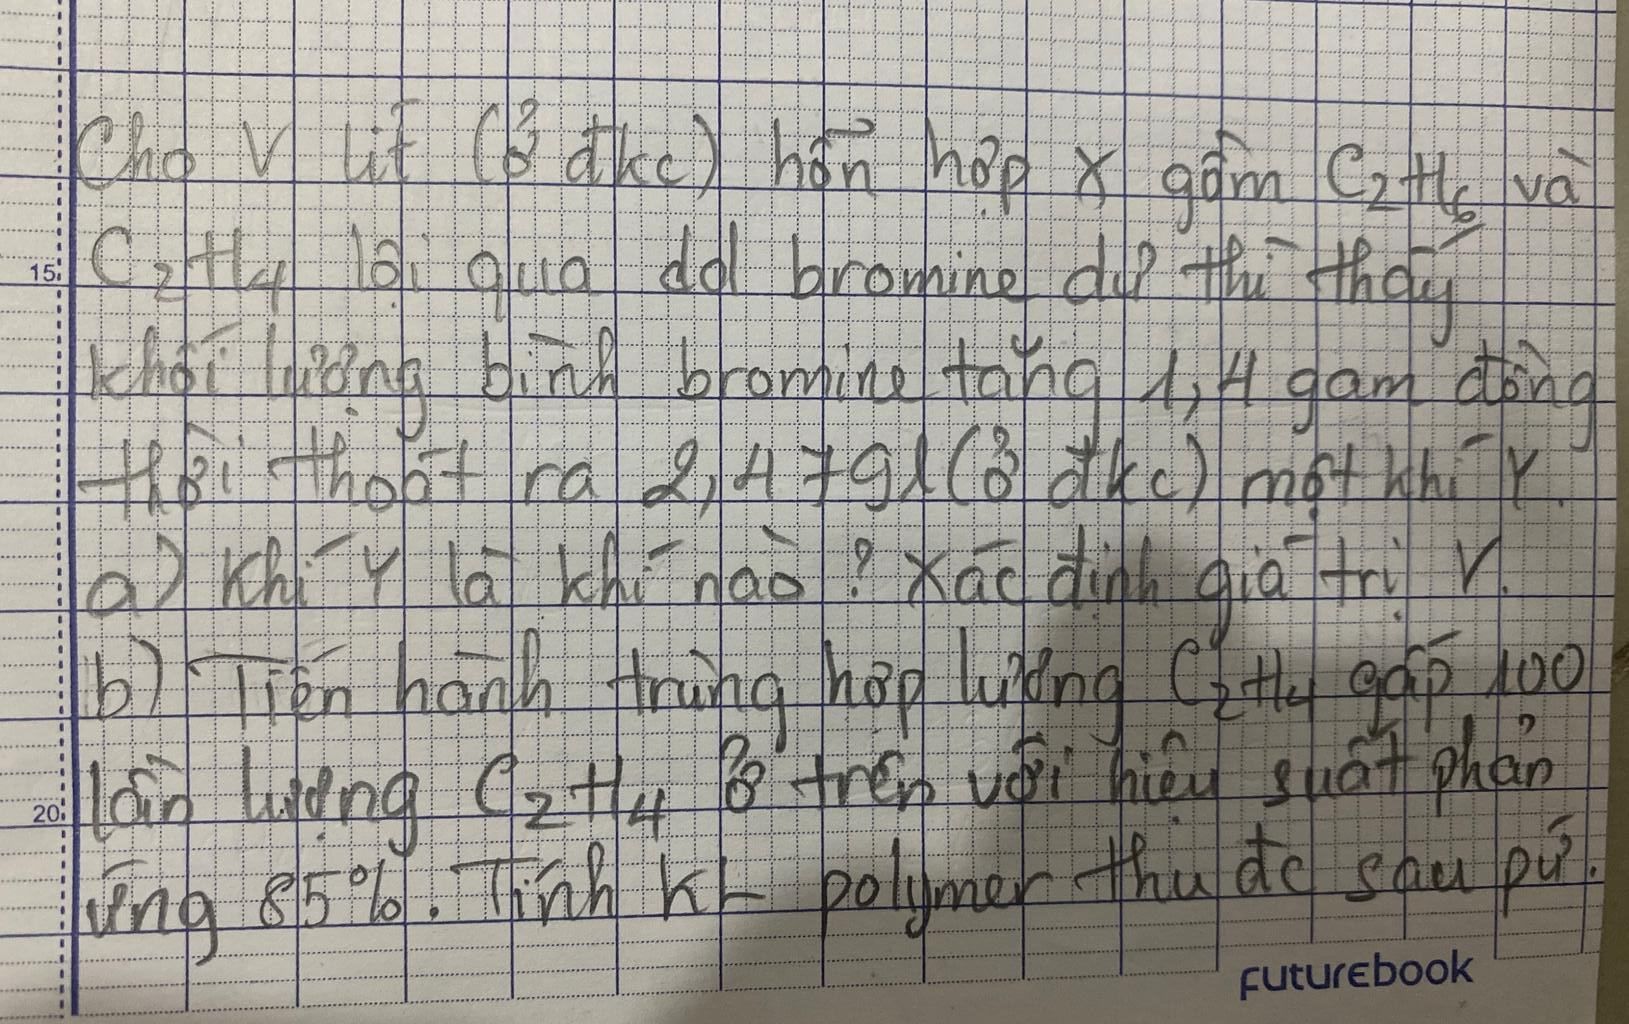 Cho V lít (ở đkc) hỗn hợp X gồm C₂H₆ và
15. C₂H₄ lội qua dd bromine dư thì thấy
khối lượng bình bromine tăng 1,4 gam đồng
thời thoát ra 2,479l (ở đkc) một khí Y.
a) Khí Y là khí nào? Xác định giá trị V.
b) Tiến hành trùng hợp lượng C₂H₄ gấp 100
20. lần lượng C₂H₄ ở trên với hiệu suất phản
ứng 85%. Tính KL polymer thu đc sau pứ.
FUTUREBOOK